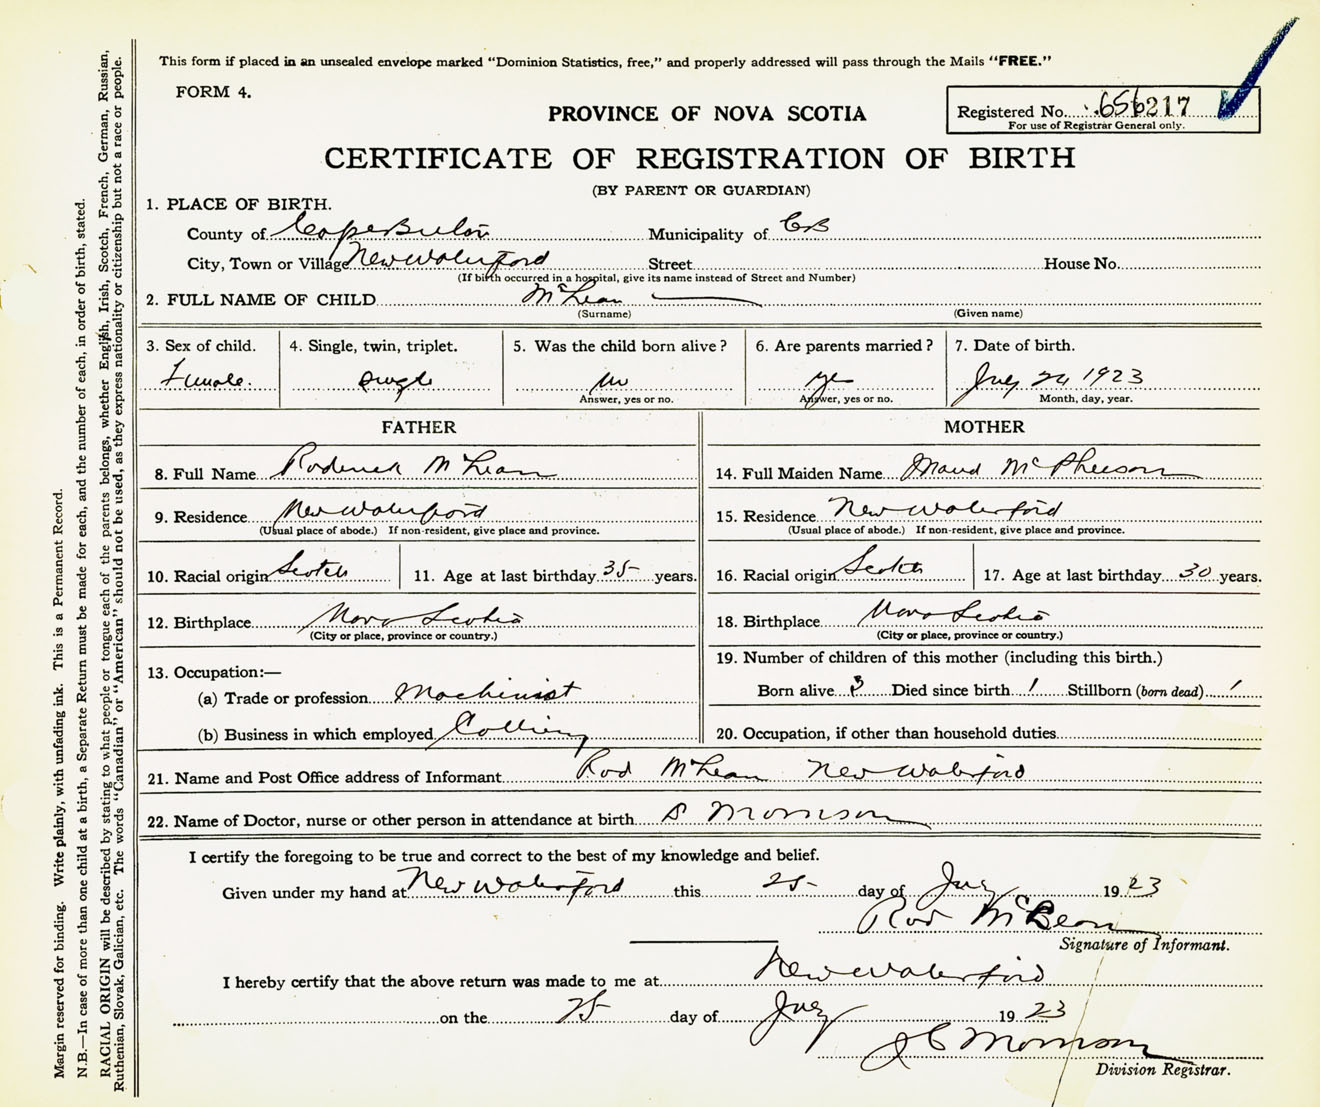 This form if placed in an unsealed envelope marked "Dominion Statistics, free," and properly addressed will pass through the Mails "FREE."
FORM 4.
PROVINCE OF NOVA SCOTIA
Registered No. 656217
For use of Registrar General only.
CERTIFICATE OF REGISTRATION OF BIRTH
(BY PARENT OR GUARDIAN)
1. PLACE OF BIRTH.
County of Cape Breton Municipality of CB
City, Town or Village New Waterford Street House No.
(If birth occurred in a hospital, give its name instead of Street and Number)
2. FULL NAME OF CHILD McLean
(Surname) (Given name)
3. Sex of child. 4. Single, twin, triplet. 5. Was the child born alive? 6. Are parents married? 7. Date of birth.
Female. single no yes July 24 1923
Answer, yes or no. Answer, yes or no. Month, day, year.
FATHER MOTHER
8. Full Name Roderick McLean 14. Full Maiden Name Maud McPherson
9. Residence New Waterford 15. Residence New Waterford
(Usual place of abode.) If non-resident, give place and province. (Usual place of abode.) If non-resident, give place and province.
10. Racial origin Scotch 11. Age at last birthday 35 years. 16. Racial origin Scotch 17. Age at last birthday 30 years.
12. Birthplace Nova Scotia 18. Birthplace Nova Scotia
(City or place, province or country.) (City or place, province or country.)
13. Occupation:— 19. Number of children of this mother (including this birth.)
(a) Trade or profession Machinist Born alive 3 Died since birth 1 Stillborn (born dead) 1
(b) Business in which employed Colliery 20. Occupation, if other than household duties
21. Name and Post Office address of Informant Rod McLean New Waterford
22. Name of Doctor, nurse or other person in attendance at birth Morrison
I certify the foregoing to be true and correct to the best of my knowledge and belief.
Given under my hand at New Waterford this 25 day of July 1923
Rod McLean
Signature of Informant.
I hereby certify that the above return was made to me at New Waterford
on the 25 day of July 1923
J C Morrison
Division Registrar.
Margin reserved for binding. Write plainly, with unfading ink. This is a Permanent Record.
N.B.—In case of more than one child at a birth, a Separate Return must be made for each, and the number of each, in order of birth, stated.
RACIAL ORIGIN will be described by stating to what people or tongue each of the parents belongs, whether English, Irish, Scotch, French, German, Russian,
Ruthenian, Slovak, Galician, etc. The words "Canadian" or "American" should not be used, as they express nationality or citizenship but not a race or people.